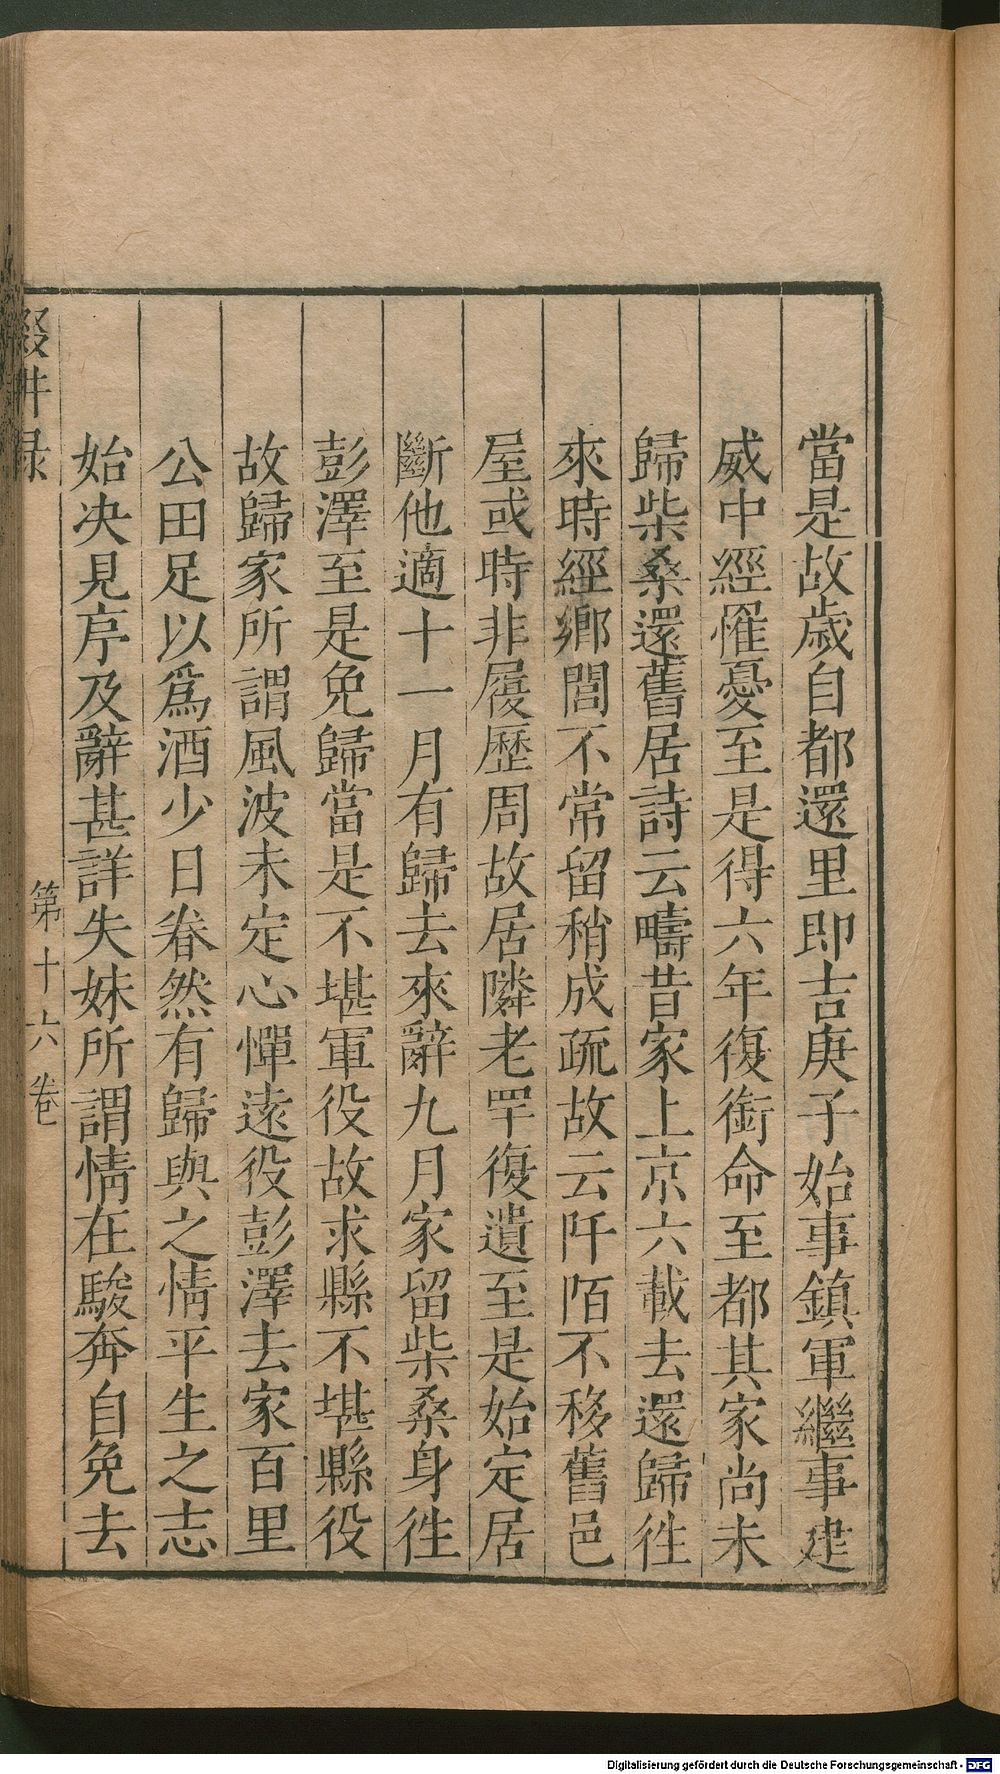 當是故歲自都還里即吉庚子始事鎮軍繼事建
威中經罹憂至是得六年復銜命至都其家尚未
歸柴桑還舊居詩云疇昔家上京六載去還歸徃
來時經鄉閭不常留稍成疏故云阡陌不移舊邑
屋或時非履歷周故居隣老罕復遺至是始定居
斷他適十一月有歸去來辭九月家留柴桑身徃
彭澤至是免歸當是不堪軍役故求縣不堪縣役
故歸家所謂風波未定心憚遠役彭澤去家百里
公田足以爲酒少日眷然有歸與之情平生之志
始决見序及辭甚詳失妹所謂情在駿奔自免去
輟畊录
第十六卷
Digitalisierung gefördert durch die Deutsche Forschungsgemeinschaft - DFG